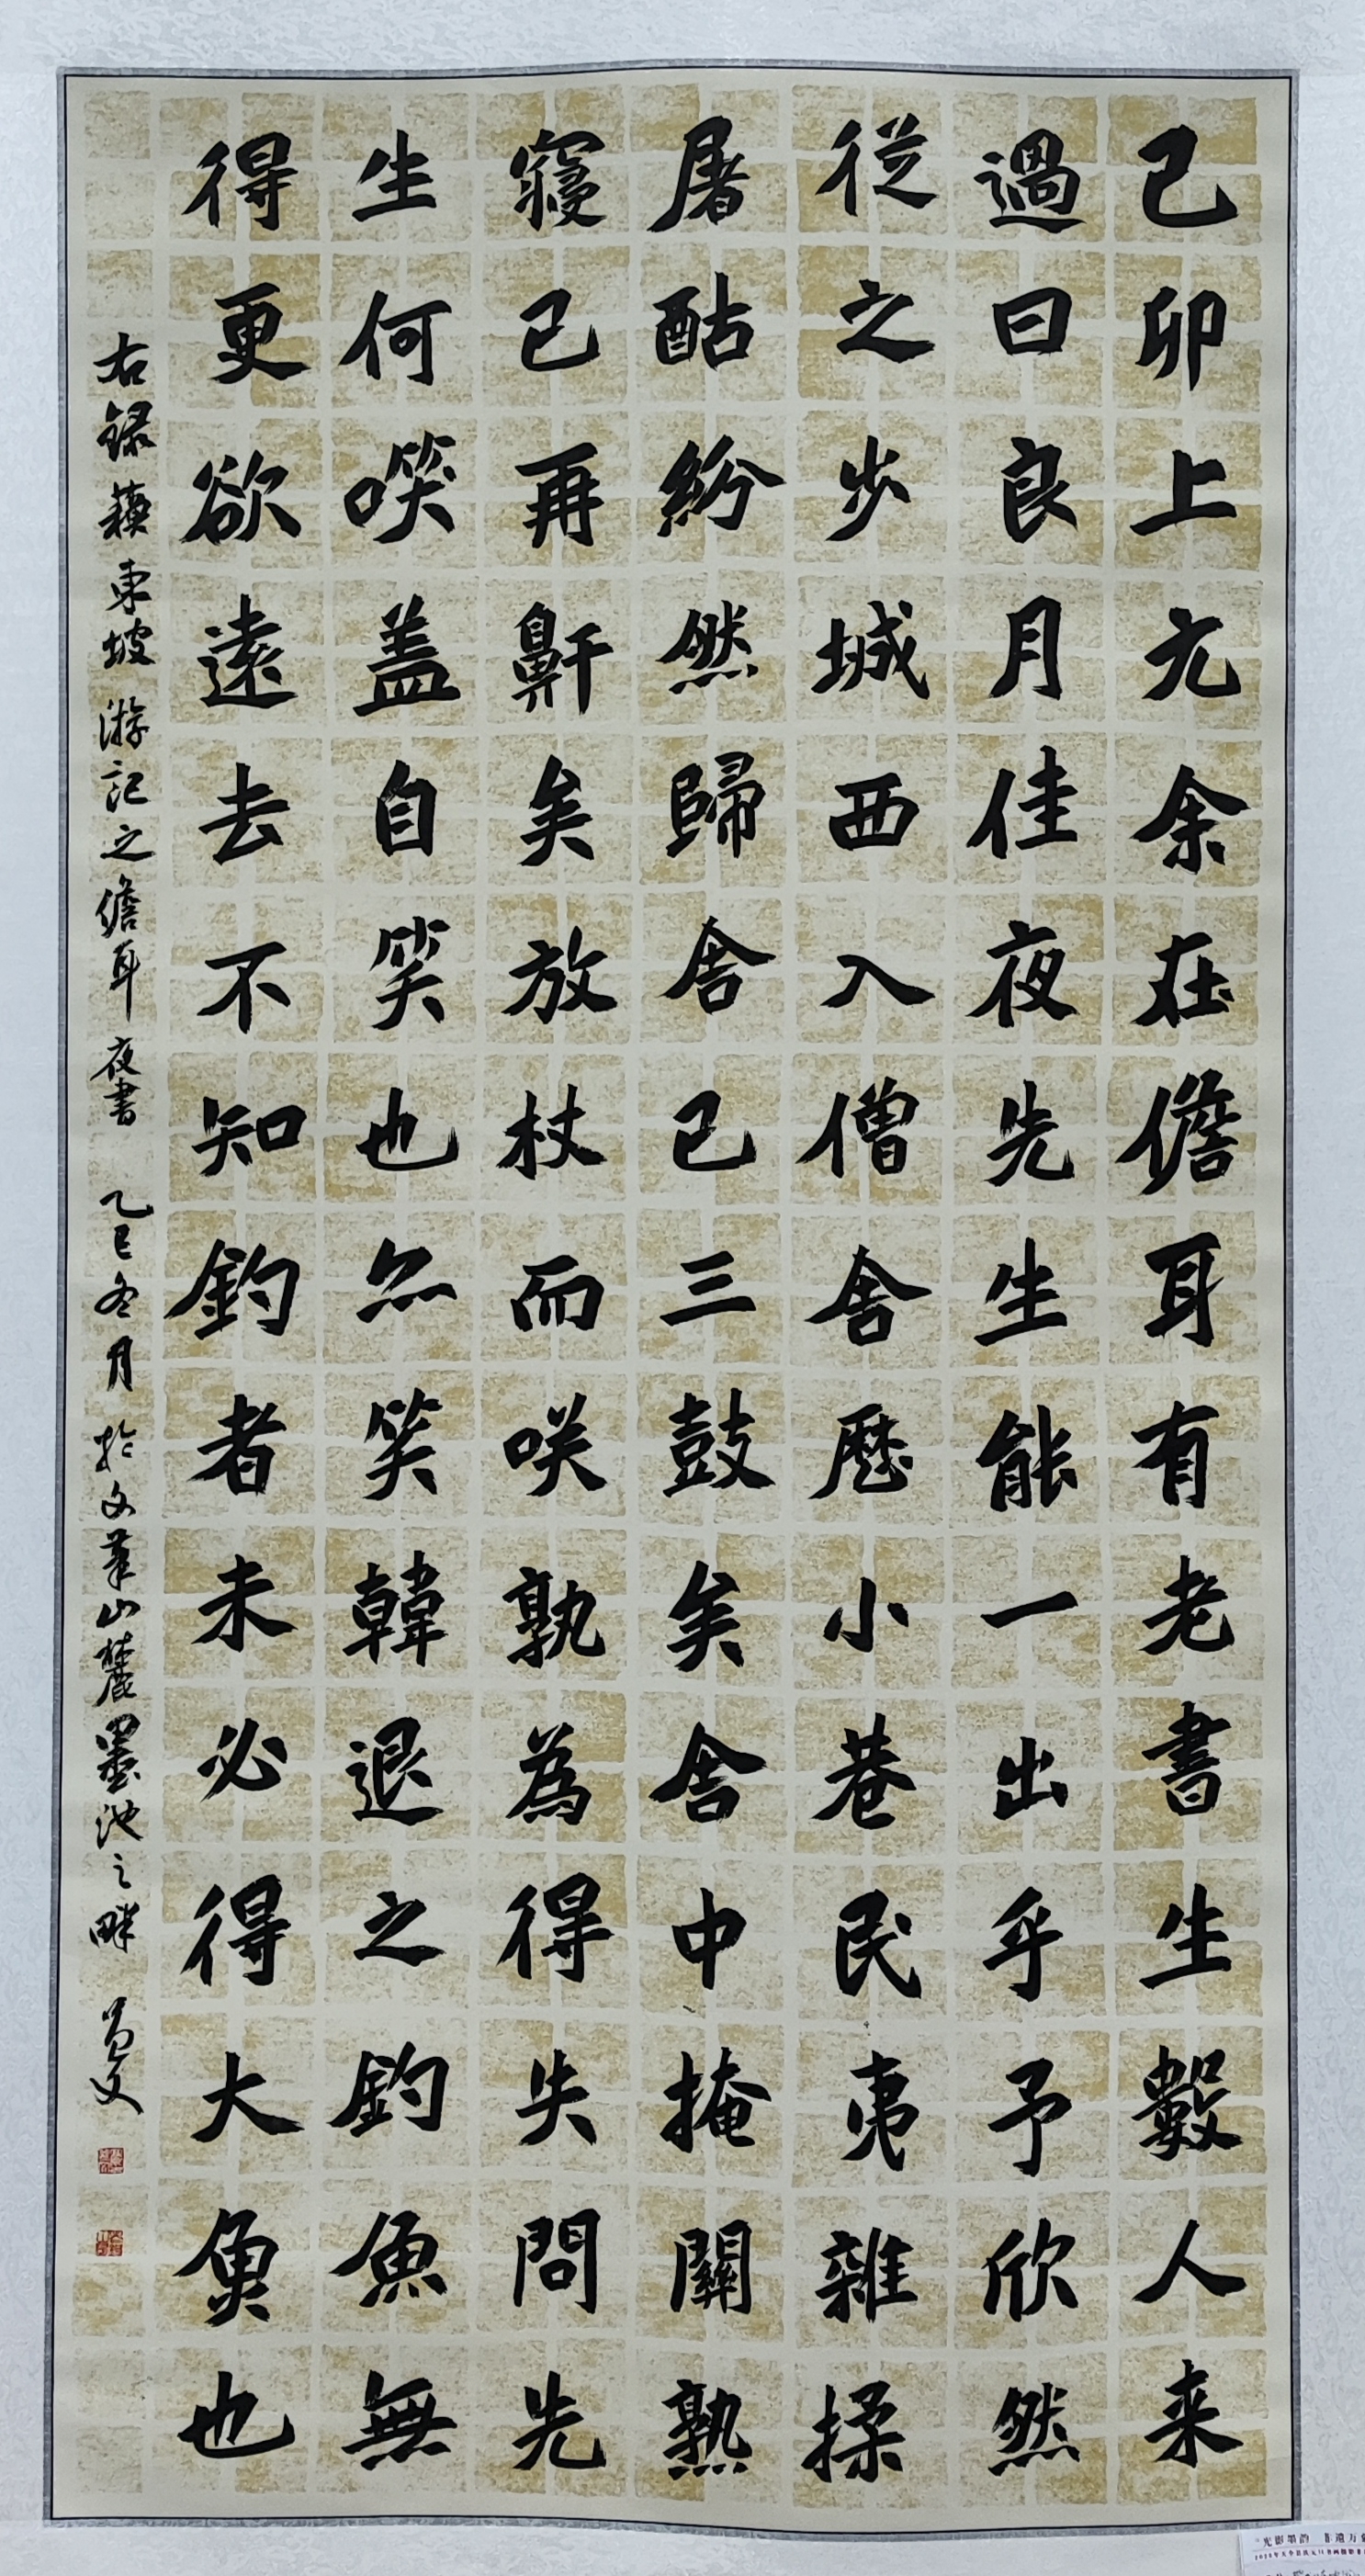 己卯上元余在儋耳有老書生數人来
過曰良月佳夜先生能一出乎予欣然
從之步城西入僧舍歷小巷民夷雜揉
屠酤紛然歸舍已三鼓矣舍中掩關熟
寢已再鼾矣放杖而咲孰為得失問先
生何㗛盖自笑也然笑韓退之釣魚無
得更欲遠去不知釣者未必得大魚也
右録蘓東坡游記之儋耳夜書 乙巳冬月於文筆山麓墨池之畔